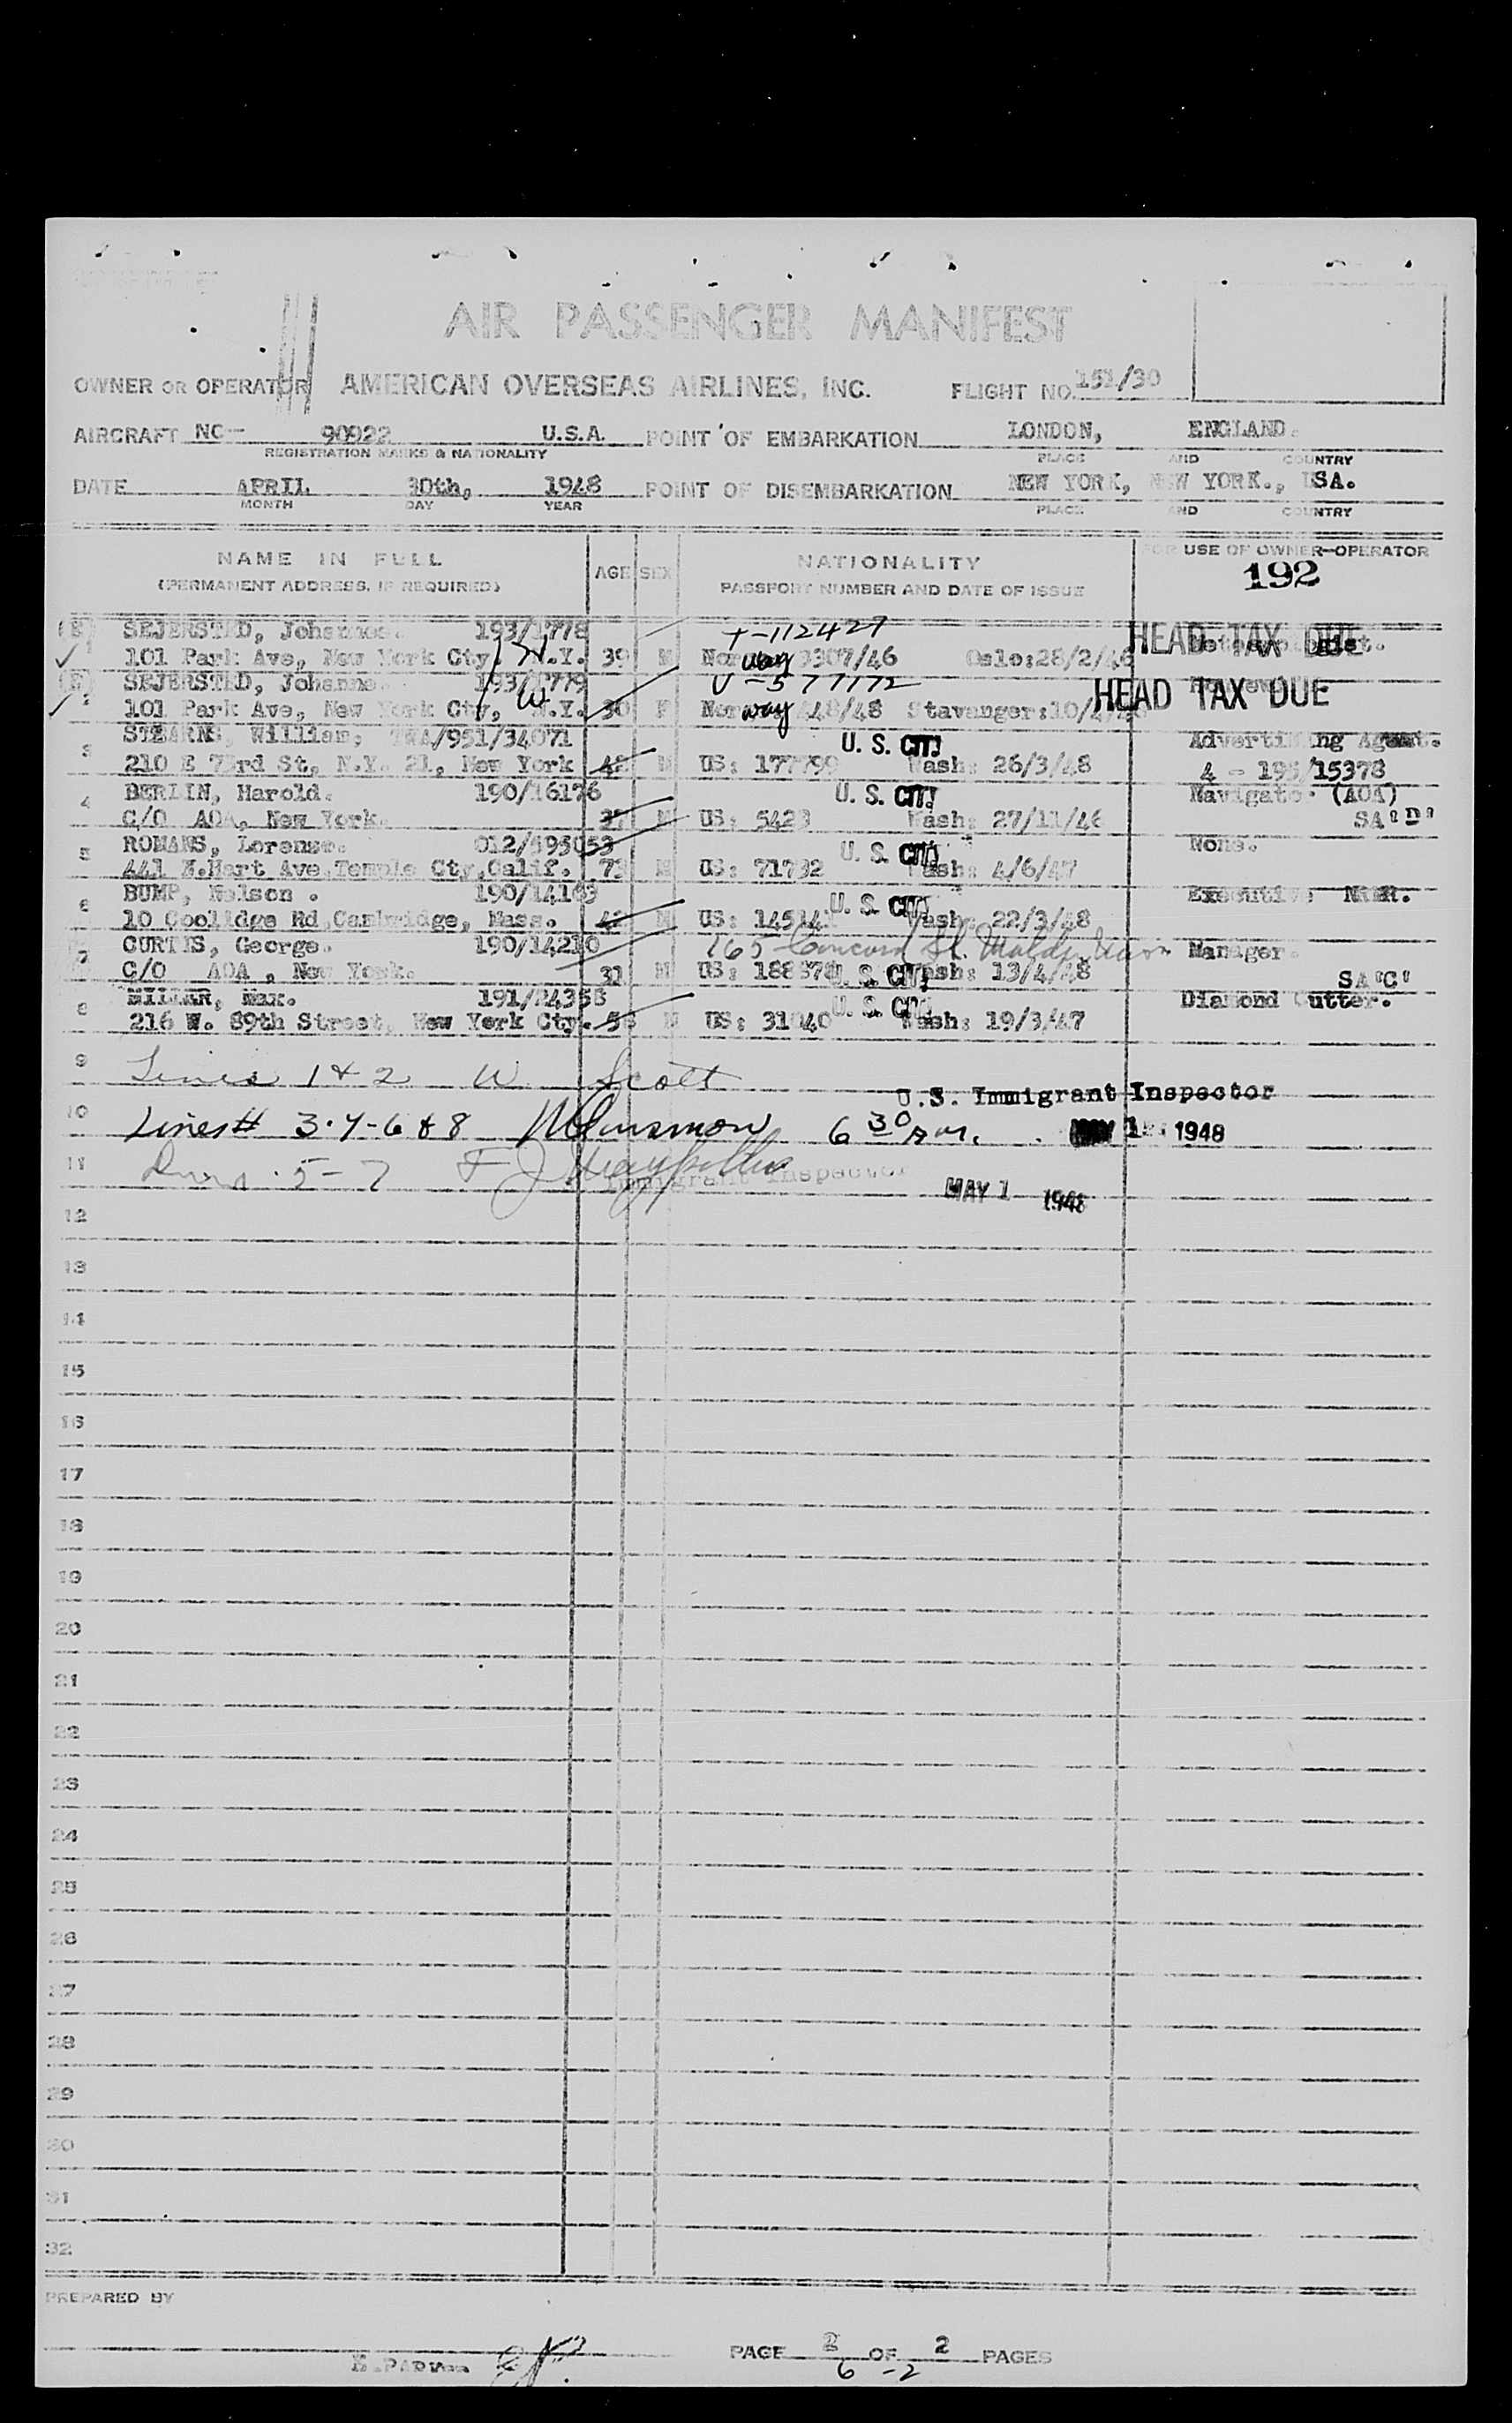 AIR PASSENGER MANIFEST
OWNER OR OPERATOR AMERICAN OVERSEAS AIRLINES, INC. FLIGHT NO. 151/30
AIRCRAFT NC- 90922 U.S.A. POINT OF EMBARKATION LONDON, ENGLAND.
REGISTRATION MARKS & NATIONALITY PLACE AND COUNTRY
DATE APRIL 30th, 1948 POINT OF DISEMBARKATION NEW YORK, NEW YORK., USA.
MONTH DAY YEAR PLACE AND COUNTRY
NAME IN FULL AGE SEX NATIONALITY FOR USE OF OWNER-OPERATOR
(PERMANENT ADDRESS, IF REQUIRED) PASSPORT NUMBER AND DATE OF ISSUE 192
SEJERSTED, 193/1778 HEAD TAX DUE
1 101 Park Ave, New York Cty. N.Y. 39 M Norway 3307/46 Oslo:28/2/46
SEJERSTED, Johanne. 193/1779 HEAD TAX DUE
2 101 Park Ave, New York Cty, N.Y. 30 F Norway /48 Stavanger:10/
STEARNS, William; TWA/951/34071 U. S. CIT. Advertising Agent.
3 210 E 73rd St, N.Y. 21, New York 42 M US: 177799 Wash: 26/3/48 4 - 195/15378
BERLIN, Harold. 190/16176 U. S. CIT. Navigator (AOA)
4 C/O AOA, New York. 37 M US: 5423 Wash: 27/11/46 SA"D"
ROMANS, Lorenso. 012/595053 U. S. CIT. None.
5 441 N.Hart Ave Temple Cty,Calif. 73 M US: 71732 Wash: 4/6/47
BUMP, Nelson . 190/14163 U. S. CIT. Executive
6 10 Coolidge Rd,Cambridge, Mass. 42 M US: Wash: 22/3/48
CURTIS, George. 190/14210 165 Concord St. Manager.
7 C/O AOA , New York. 31 M US: U. S. CIT. Wash: 13/4/48 SA"C"
MILLAR, Max. 191/ U. S. CIT. Diamond Cutter.
8 216 W. 89th Street, New York Cty. M US: Wash: 19/3/47
9 Lines 1 & 2 W Scott
U.S. Immigrant Inspector
10 Lines# 3-4-6 & 8 6 30 A.M. MAY 1 1948
11 5-7 F J
Immigrant Inspector
MAY 1 1948
12
13
14
15
16
17
18
19
20
21
22
23
24
25
26
27
28
29
30
31
32
PREPARED BY
PAGE 2 OF 2 PAGES
6 -2